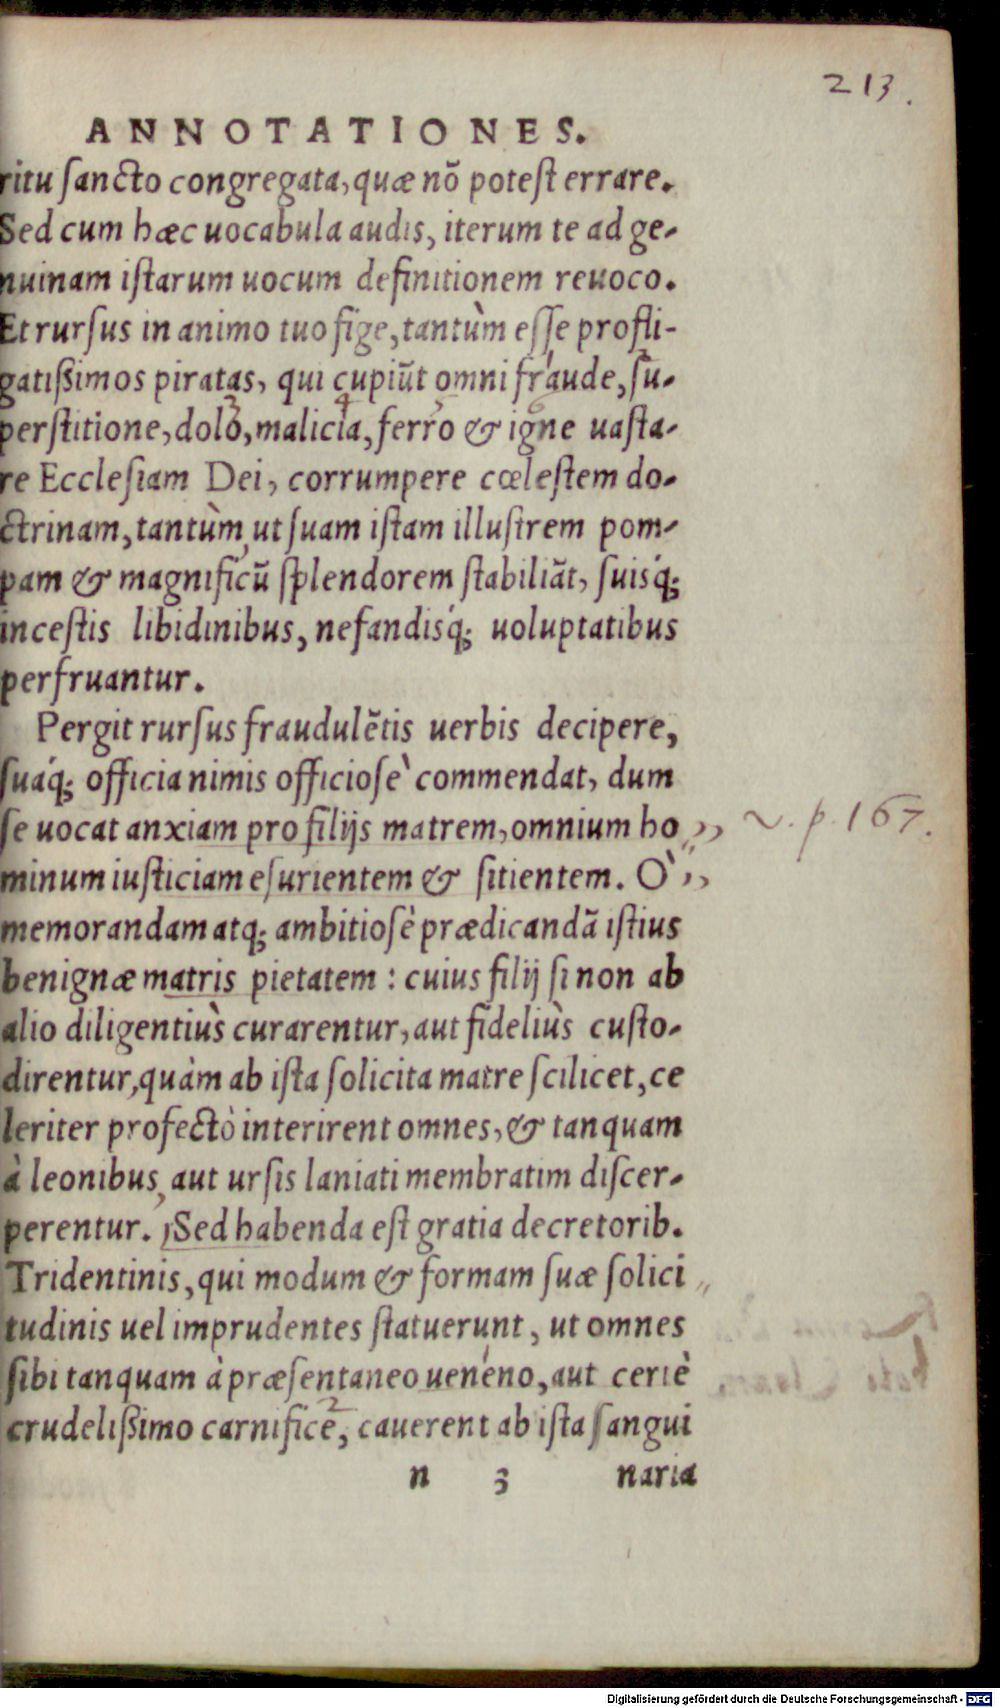 213.
ANNOTATIONES.
ritu sancto congregata, quæ nõ potest errare.
Sed cum hæc uocabula audis, iterum te ad ge-
nuinam istarum uocum definitionem reuoco.
Et rursus in animo tuo fige, tantùm esse profli-
gatißimos piratas, qui cupiũt omni fraude, su-
perstitione, dolo, malicia, ferro & igne uasta-
re Ecclesiam Dei, corrumpere cœlestem do-
ctrinam, tantùm, ut suam istam illustrem pom-
pam & magnificũ splendorem stabiliãt, suisq́;
incestis libidinibus, nefandisq́; uoluptatibus
perfruantur.
Pergit rursus fraudulẽtis uerbis decipere,
suaq́; officia nimis officiosè commendat, dum
se uocat anxiam pro filijs matrem, omnium ho
v. p. 167.
minum iusticiam esurientem & sitientem. Ò
memorandam atq; ambitiosè prædicandã istius
benignæ matris pietatem : cuius filij si non ab
alio diligentiùs curarentur, aut fideliùs custo-
direntur, quàm ab ista solicita matre scilicet, ce
leriter profectò interirent omnes, & tanquam
à leonibus, aut ursis laniati membratim discer-
perentur. Sed habenda est gratia decretorib.
Tridentinis, qui modum & formam suæ solici
tudinis uel imprudentes statuerunt, ut omnes
sibi tanquam à præsentaneo ueneno, aut certè
crudelißimo carnifice, cauerent ab ista sangui
n 3 naria
Digitalisierung gefördert durch die Deutsche Forschungsgemeinschaft - DFG